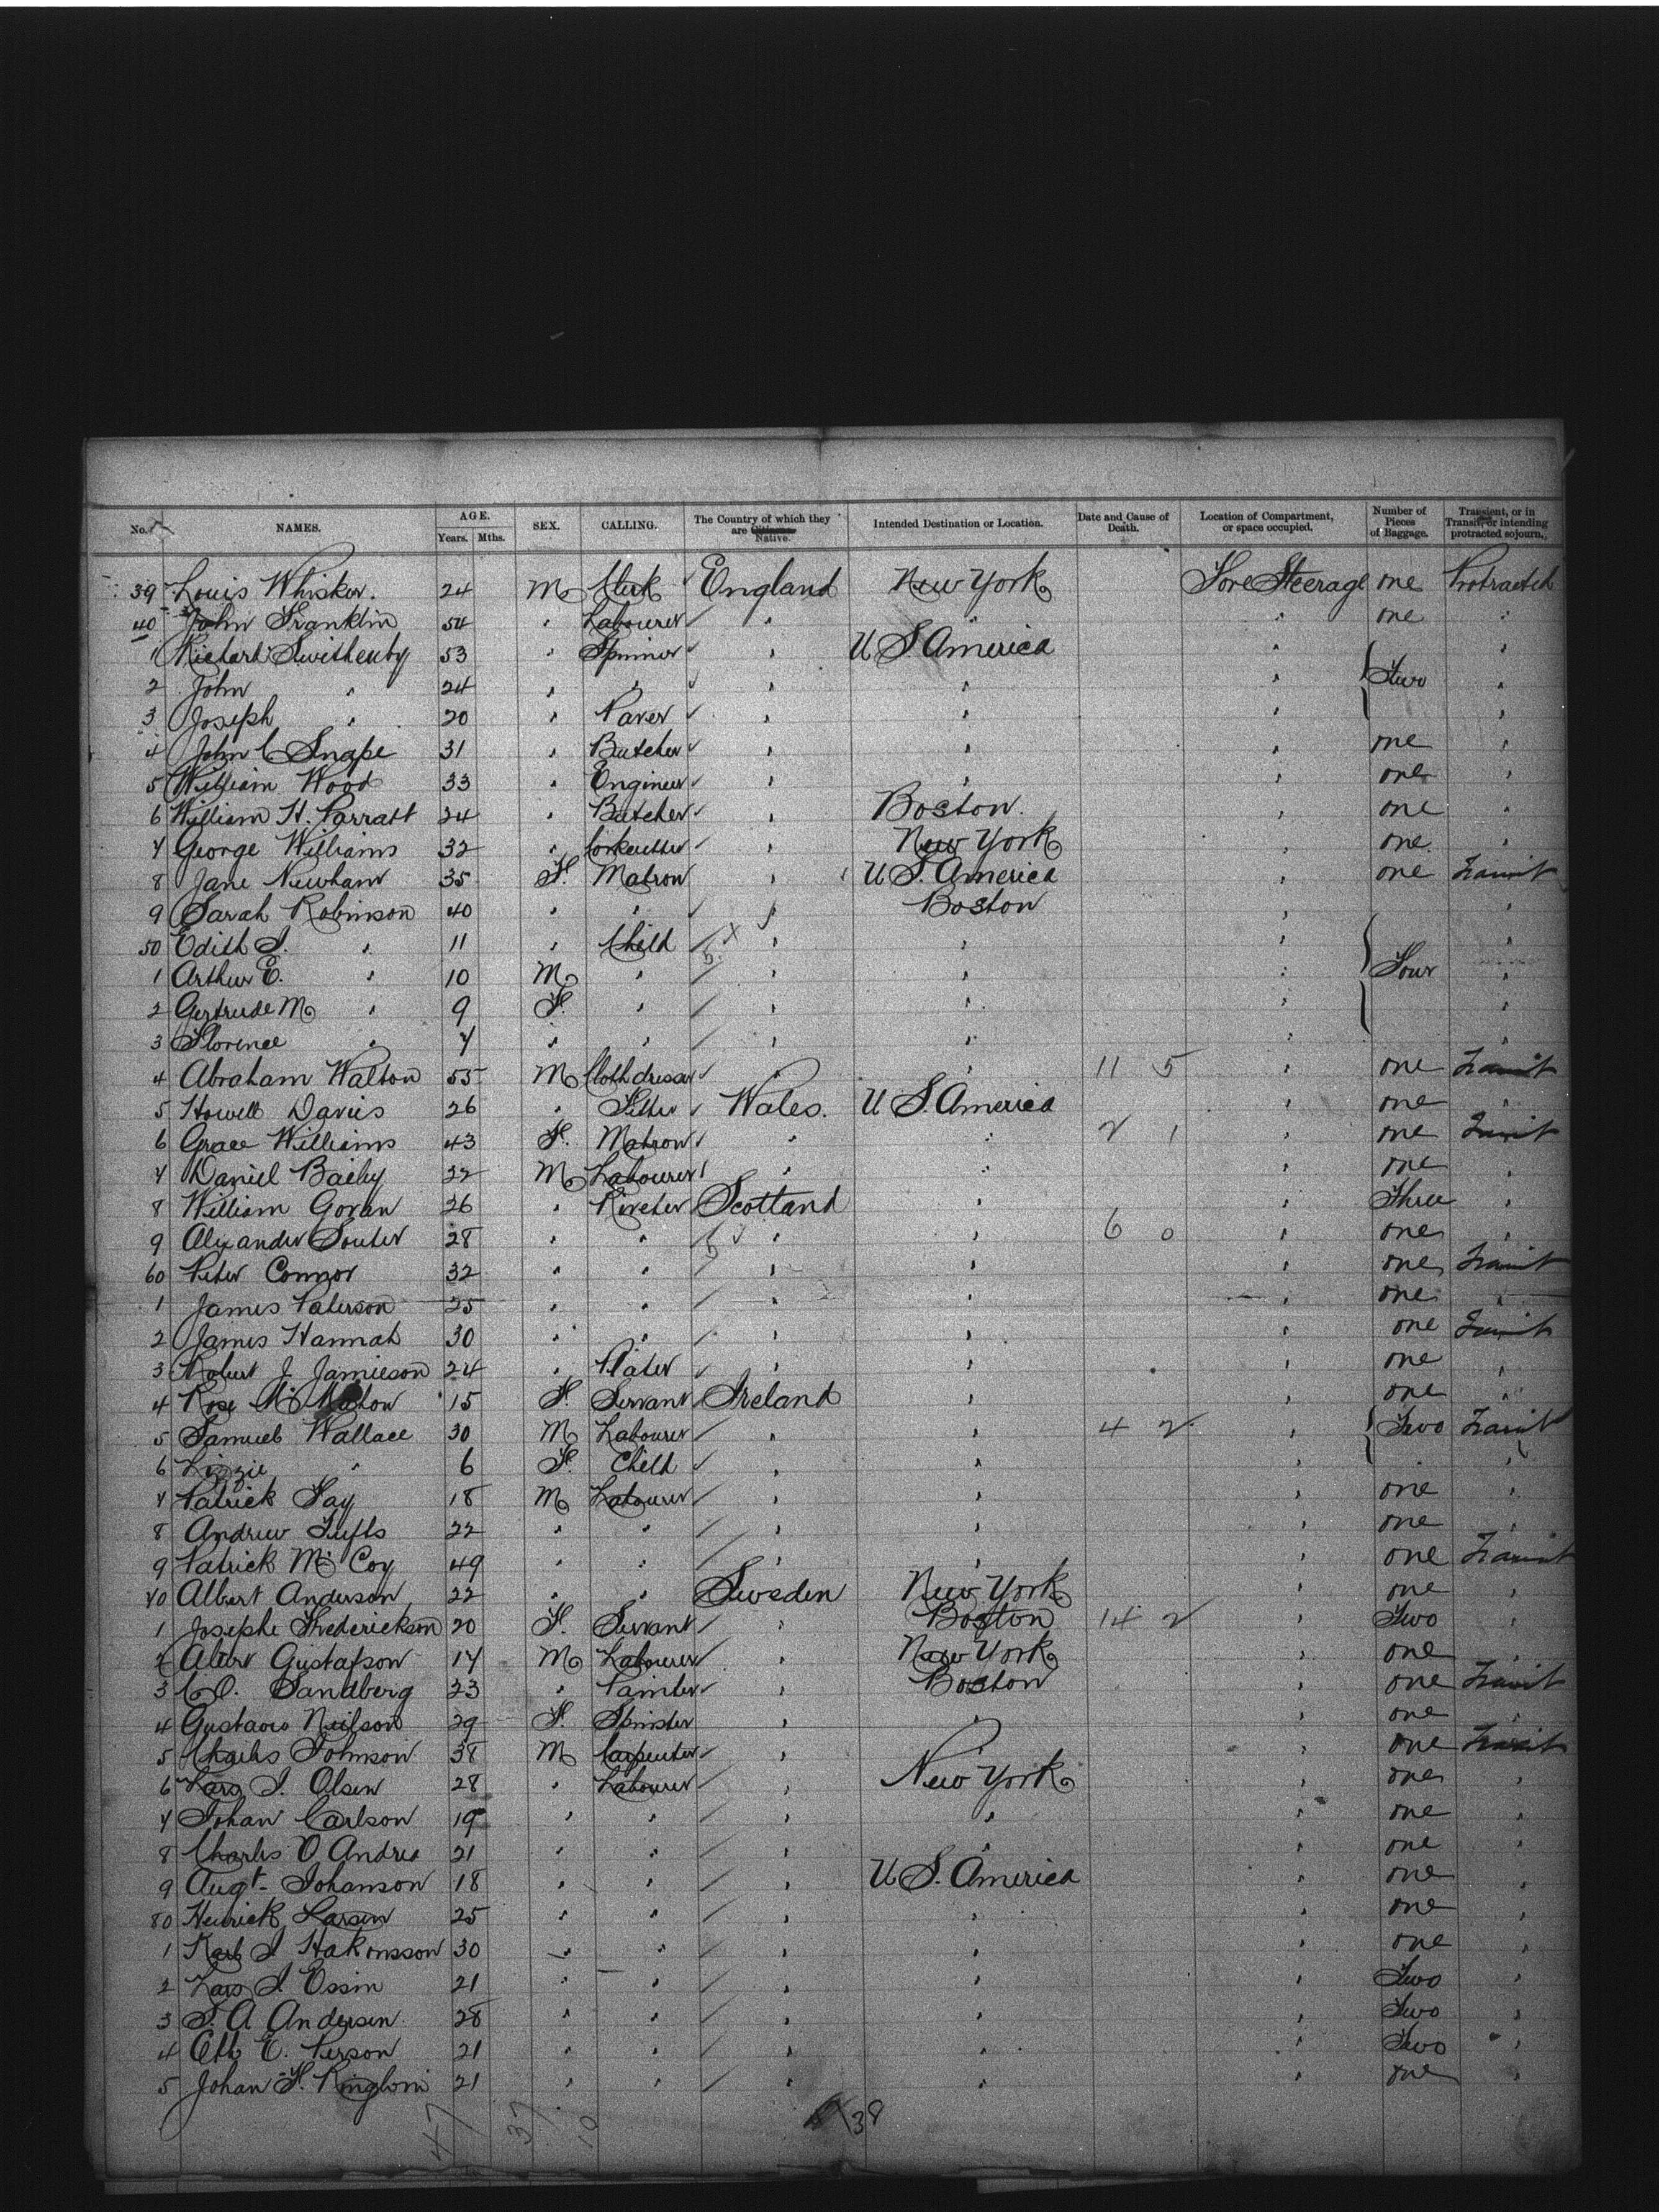 No. NAMES. AGE. Years. Mths. SEX. CALLING. The Country of which they are Citizens. Native. Intended Destination or Location. Date and Cause of Death. Location of Compartment, or space occupied. Number of Pieces of Baggage. Transient, or in Transit, or intending protracted sojourn.
39 Louis Whisker. 24 M Clerk England New York Fore Steerage one Protracted
40 John Franklin 54 " Labourer " " " one "
1 Richard Swithenby 53 " Spinner " U S America " "
2 John " 24 " " " " " Two "
3 Joseph " 20 " Paver " " " "
4 John C Snape 31 " Butcher " " " one "
5 William Wood 33 " Engineer " " " one "
6 William H. Parratt 24 " Butcher " Boston. " one "
7 George Williams 32 " Corkcutter " New York " one "
8 Jane Newham 35 F. Matron " U S. America " one Transit
9 Sarah Robinson 40 " " " Boston " "
50 Edith J. " 11 " Child " " " "
1 Arthur E. " 10 M " " " " Four "
2 Gertrude M " 9 F. " " " " "
3 Florence " 7 " " " " " "
4 Abraham Walton 55 M Clothdresser " " 11 5 " one Transit
5 Howell Davies 26 " Fitter Wales. U S. America " one "
6 Grace Williams 43 F. Matron " " 2 1 " one Transit
7 Daniel Bailey 32 M Labourer " " " one "
8 William Govan 26 " Riveter Scotland " " Three "
9 Alexander Souter 28 " " " " 6 0 " one "
60 Peter Connor 32 " " " " " one Transit
1 James Paterson 25 " " " " " one "
2 James Hannah 30 " " " " " one Transit
3 Robert J. Jamieson 24 " Plater " " " one "
4 Rose McMahon 15 F. Servant Ireland " " one "
5 Samuel Wallace 30 M Labourer " " 4 2 " Two Transit
6 Lizzie " 6 F. Child " " " "
7 Patrick Fay 18 M Labourer " " " one "
8 Andrew Tufts 22 " " " " " one "
9 Patrick McCoy 49 " " " " " one Transit
70 Albert Anderson 22 " " Sweden New York " one "
1 Josephe Frederickson 20 F. Servant " Boston 14 2 " Two "
2 Albert Gustafson 17 M Labourer " New York " one "
3 C O. Sandberg 23 " Painter " Boston " one Transit
4 Gustava Neilson 29 F. Spinster " " " one "
5 Charles Johnson 38 M Carpenter " " " one Transit
6 Lars J. Olsen 28 " Labourer " New York " one "
7 Johan Carlson 19 " " " " " one "
8 Charles O Andrea 21 " " " " " one "
9 Augt. Johanson 18 " " " U S. America " one "
80 Henrick Larsen 25 " " " " " one "
1 Karl J Hakonsson 30 " " " " " one "
2 Lars J 21 " " " " " Two "
3 S. A Andersen. 28 " " " " " Two "
4 E. Person 21 " " " " " Two "
5 Johan F. 21 " " " " " one "
47 37 10 38